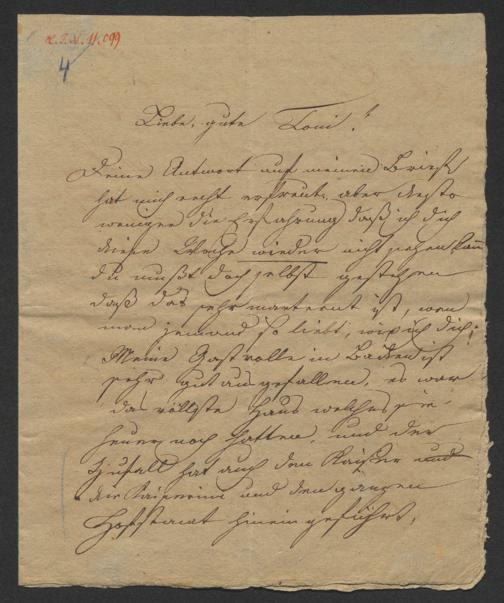 I.N. 11.099
4
Liebe, gute Toni!
Deine Antwort auf meinen Brief
hat mich recht erfreut, aber desto
weniger die Erfahrung daß ich dich
diese Woche wieder nicht sehen kann
du mußt doch selbst gestehen
daß das sehr marternt ist, wen
man jemand so liebt, wie ich dich;
Meine Gastrolle in Baden ist
sehr gut ausgefallen, es war
das vollste Haus welches sie
heuer noch hatten, und der
Zufall hat auch den Kaißer und
die Kaiserinn und den ganzen
Hofstaat hinein geführt,